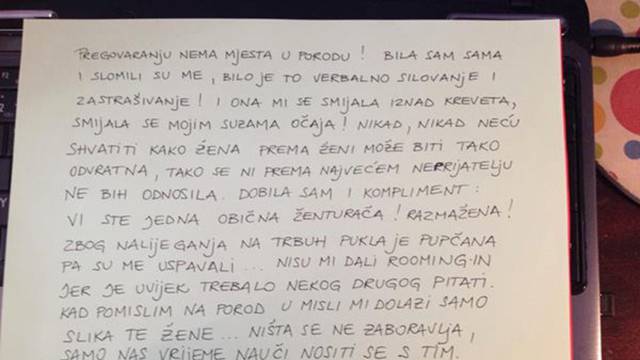 PREGOVARANJU NEMA MJESTA U PORODU! BILA SAM SAMA
I SLOMILI SU ME, BILO JE TO VERBALNO SILOVANJE I
ZASTRAŠIVANJE! I ONA MI SE SMIJALA IZNAD KREVETA,
SMIJALA SE MOJIM SUZAMA OČAJA! NIKAD, NIKAD NEĆU
SHVATITI KAKO ŽENA PREMA ŽENI MOŽE BITI TAKO
ODVRATNA, TAKO SE NI PREMA NAJVEĆEM NEPRIJATELJU
NE BIH ODNOSILA. DOBILA SAM I KOMPLIMENT:
VI STE JEDNA OBIČNA ŽENTURAČA! RAZMAŽENA!
ZBOG NALIJEGANJA NA TRBUH PUKLA JE PUPČANA
PA SU ME USPAVALI... NISU MI DALI ROOMING-IN
JER JE UVIJEK TREBALO NEKOG DRUGOG PITATI.
KAD POMISLIM NA POROD U MISLI MI DOLAZI SAMO
SLIKA TE ŽENE... NIŠTA SE NE ZABORAVLJA,
SAMO NAS VRIJEME NAUČI NOSITI SE S TIM.